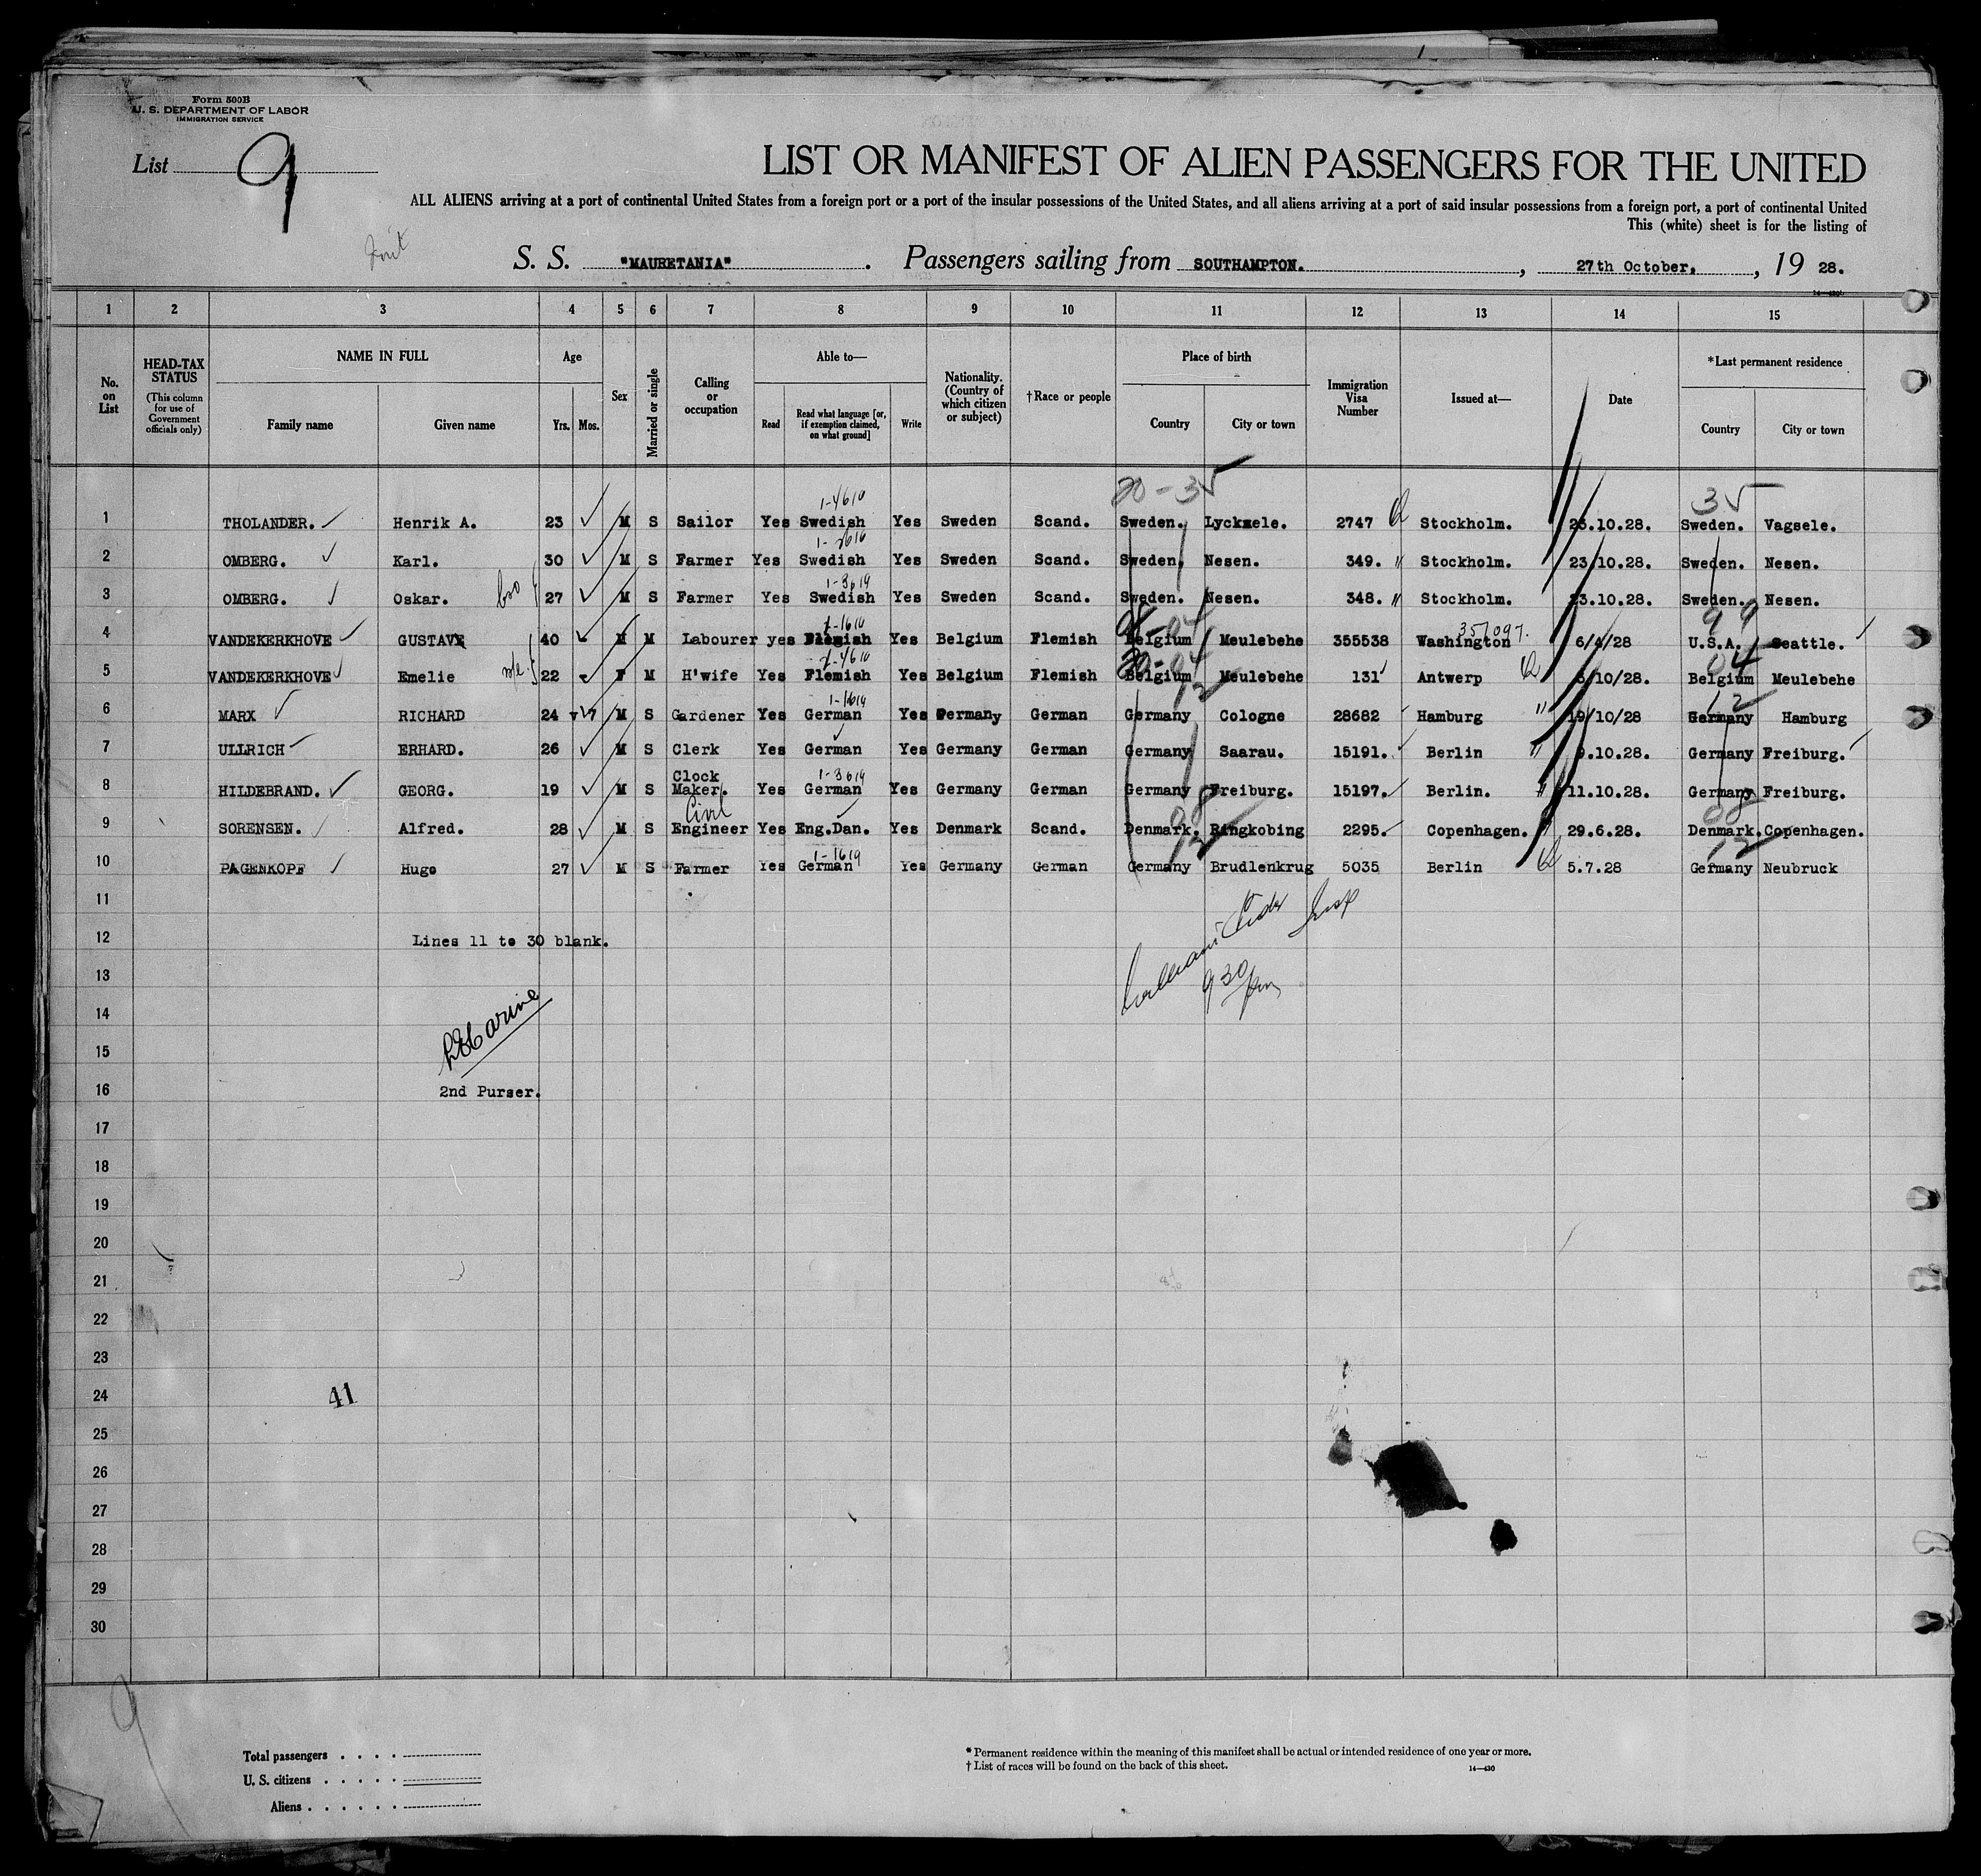 Form 500B
U. S. DEPARTMENT OF LABOR
IMMIGRATION SERVICE
List 9
LIST OR MANIFEST OF ALIEN PASSENGERS FOR THE UNITED
ALL ALIENS arriving at a port of continental United States from a foreign port or a port of the insular possessions of the United States, and all aliens arriving at a port of said insular possessions from a foreign port, a port of continental United
This (white) sheet is for the listing of
S. S. "MAURETANIA". Passengers sailing from SOUTHAMPTON., 27th October., 19 28.
14—430
1 2 3 4 5 6 7 8 9 10 11 12 13 14 15
No. on List
HEAD-TAX STATUS
(This column for use of Government officials only)
NAME IN FULL
Family name Given name
Age
Yrs. Mos.
Sex
Married or single
Calling or occupation
Able to—
Read
Read what language [or, if exemption claimed, on what ground]
Write
Nationality. (Country of which citizen or subject)
†Race or people
Place of birth
Country City or town
Immigration Visa Number
Issued at—
Date
*Last permanent residence
Country City or town
20-35 35
1-4610
1 THOLANDER. Henrik A. 23 M S Sailor Yes Swedish Yes Sweden Scand. Sweden. Lycksele. 2747 Stockholm. 23.10.28. Sweden. Vagsele.
2 OMBERG. Karl. 30 M S Farmer Yes Swedish Yes Sweden Scand. Sweden. Nesen. 349. " Stockholm. 23.10.28. Sweden. Nesen.
1-3619
3 OMBERG. Oskar. bro 27 M S Farmer Yes Swedish Yes Sweden Scand. Sweden. Nesen. 348. " Stockholm. 23.10.28. Sweden. Nesen.
1-1610 04 357097. 99
4 VANDEKERKHOVE GUSTAVE 40 M M Labourer yes Flemish Yes Belgium Flemish Belgium Meulebehe 355538 Washington 6/4/28 U.S.A. Seattle.
1-4610 04 04
5 VANDEKERKHOVE Emelie 22 F M H'wife Yes Flemish Yes Belgium Flemish Belgium Meulebehe 131 Antwerp 5/10/28. Belgium Meulebehe
1-1619 12 12
6 MARX RICHARD 24 7 M S Gardener Yes German Yes Germany German Germany Cologne 28682 Hamburg " 19/10/28 Germany Hamburg
7 ULLRICH ERHARD. 26 M S Clerk Yes German Yes Germany German Germany Saarau. 15191. Berlin " 9.10.28. Germany Freiburg.
1-3619
8 HILDEBRAND. GEORG. 19 M S Clock Maker. Yes German Yes Germany German Germany Freiburg. 15197. Berlin. " 11.10.28. Germany Freiburg.
Civil 08 08
9 SORENSEN. Alfred. 28 M S Engineer Yes Eng.Dan. Yes Denmark Scand. Denmark. Ringkobing 2295. Copenhagen. " 29.6.28. Denmark. Copenhagen.
1-1619 12 12
10 PAGENKOPF Hugo 27 M S Farmer Yes German Yes Germany German Germany Brudlenkrug 5035 Berlin 5.7.28 Germany Neubruck
11
12 Lines 11 to 30 blank.
13 9 30 pm
14
15
16 2nd Purser.
17
18
19
20
21
22
23
24 41
25
26
27
28
29
30
9
Total passengers
U. S. citizens
Aliens
* Permanent residence within the meaning of this manifest shall be actual or intended residence of one year or more.
† List of races will be found on the back of this sheet.
14—430